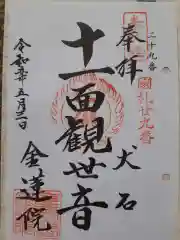 二十九番
奉拝
十一面観世音
犬石
令和元年五月三日
金蓮院